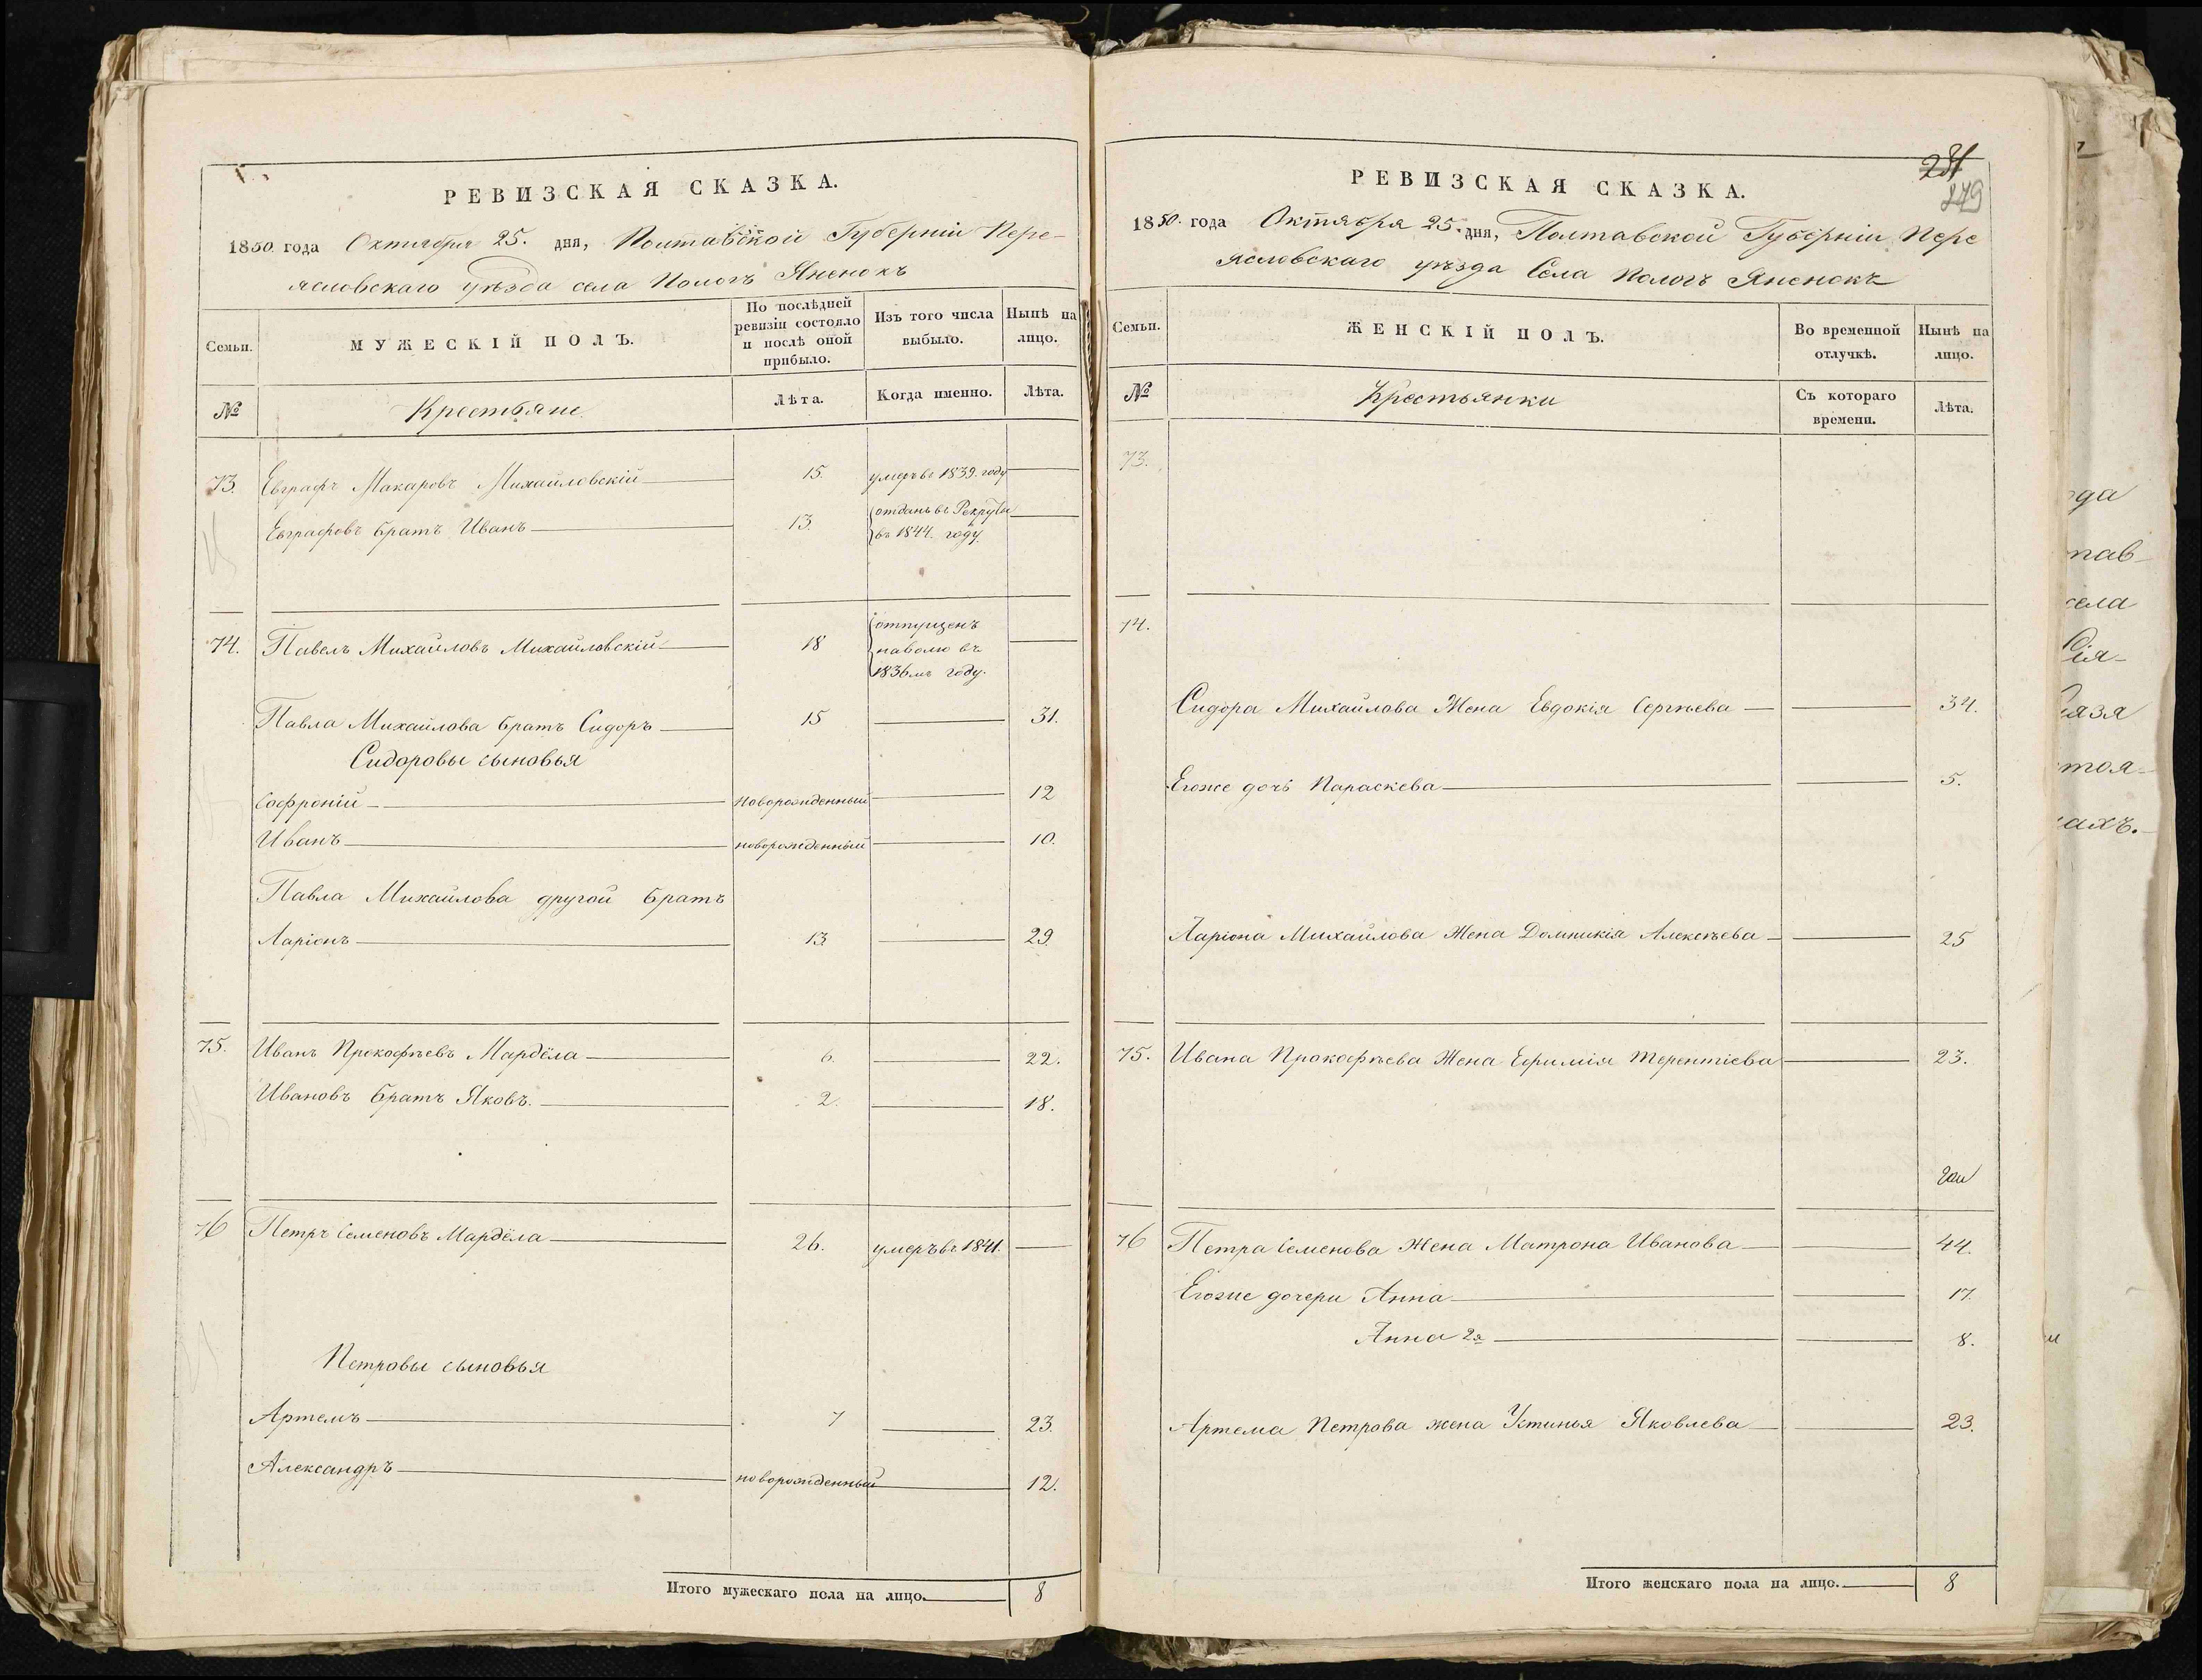 РЕВИЗСКАЯ СКАЗКА.
1850. года Октября 25. дня, Полтавской Губерніи Пере-
яславскаго уѣзда села Пологъ Яненокъ
Семьи.
МУЖЕСКІЙ ПОЛЪ.
По послѣдней ревизіи состояло и послѣ оной прибыло.
Изъ того числа выбыло.
Нынѣ на лицо.
№
Крестьяне
Лѣта.
Когда именно.
Лѣта.
73. Евграфъ Макаровъ Михайловскій 15. умеръ въ 1839. году
Евграфовъ братъ Иванъ 13. отданъ въ Рекруты
въ 1844. году.
74. Павелъ Михайловъ Михайловскій 18 отпущенъ
наволю въ
1836мъ году.
Павла Михайлова братъ Сидоръ 15 31.
Сидоровы сыновья
Софроній новорожденный 12
Иванъ новорожденный 10.
Павла Михайлова другой братъ
Ларіонъ 13 29.
75. Иванъ Прокофьевъ Мардёла 6. 22.
Ивановъ братъ Яковъ. 2. 18.
76 Петръ Семеновъ Мардёла 26. умеръ въ 1841.
Петровы сыновья
Артемъ 7 23.
Александръ новорожденный 12.
Итого мужескаго пола на лицо. 8
279
РЕВИЗСКАЯ СКАЗКА.
1850. года Октября 25. дня, Полтавской Губерніи Пере
яславскаго уѣзда Села Пологъ Яненокъ
Семьи.
ЖЕНСКІЙ ПОЛЪ.
Во временной отлучкѣ.
Нынѣ на лицо.
№
Крестьянки
Съ котораго времени.
Лѣта.
73.
74.
Сидора Михайлова Жена Евдокія Сергѣева 34.
Егоже дочь Параскева 5.
Ларіона Михайлова Жена Домникія Алексѣева 25
75. Ивана Прокофьева Жена Ефимія Терентіева 23.
76 Петра Семенова Жена Матрона Иванова 44.
Егоже дочери Анна 17.
Анна 2я 8.
Артема Петрова жена Устинья Яковлева 23.
Итого женскаго пола на лицо. 8